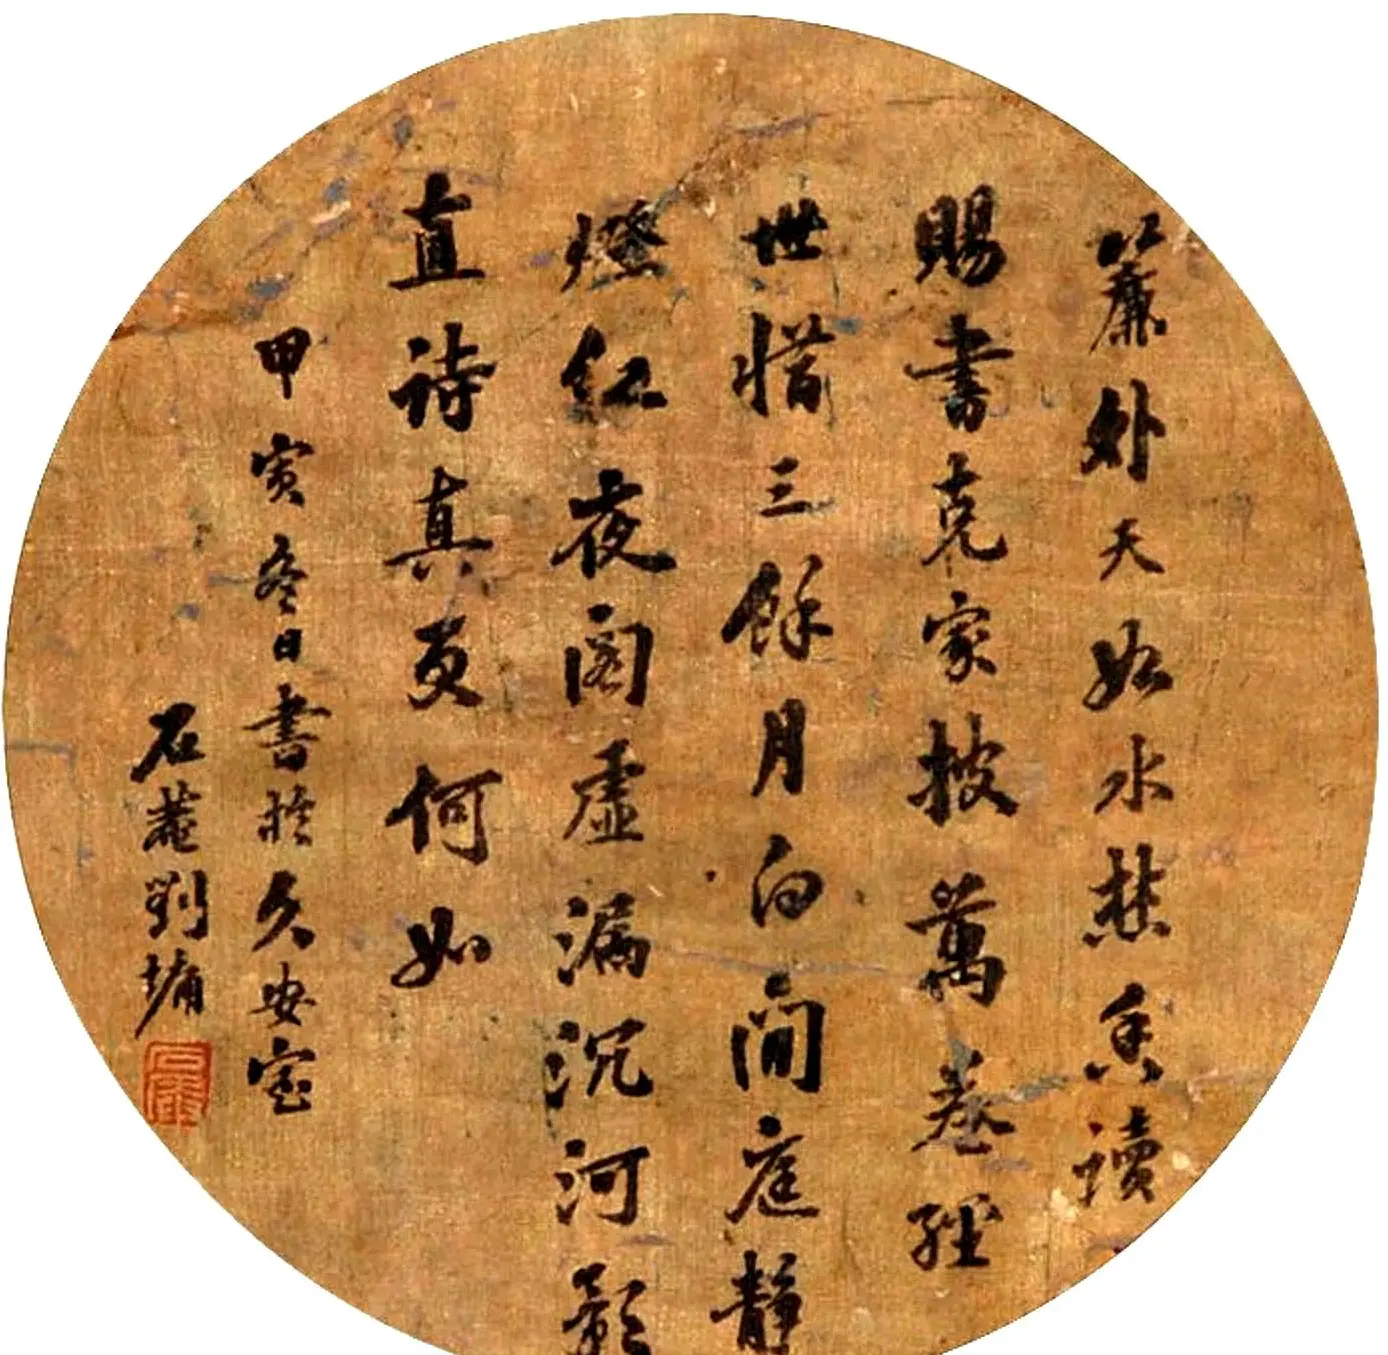 簾外天如水焚香讀
賜書克家披萬卷經
世惜三餘月白閒庭靜
燈紅夜閣虛漏沉河影
直詩真更何如
甲寅冬日書於久安室
石菴劉墉
石菴